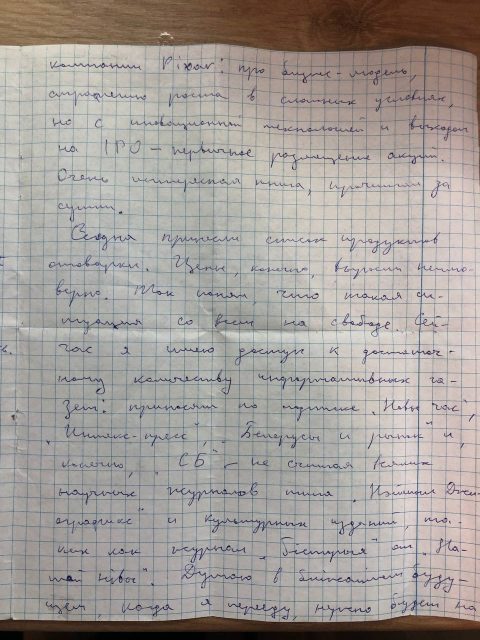 компании Pixar: про бизнес-модель,
стратегию роста в сложных условиях,
но с инновационной технологией и выходом
на IPO – первичное размещение акций.
Очень интересная книга, прочитал за
сутки.
Сегодня принесли список продуктов
отоварки. Цены, конечно, выросли неимо-
верно. Так понял, что такая си-
туация со всем на свободе. Сей-
час я имею доступ к достаточ-
ному количеству информативных га-
зет: приносят по подписке „Новы час",
„Интекс-пресс", „Белорусы и рынок" и,
конечно, „СБ" – не считая всяких
научных журналов типа „Нэйшнл Джи
ографикс" и культурных изданий, та-
ких как журнал „Гісторыя" от „На-
шай Нівы". Думаю в ближайшем буду-
щем, когда я перееду, нужно будет на